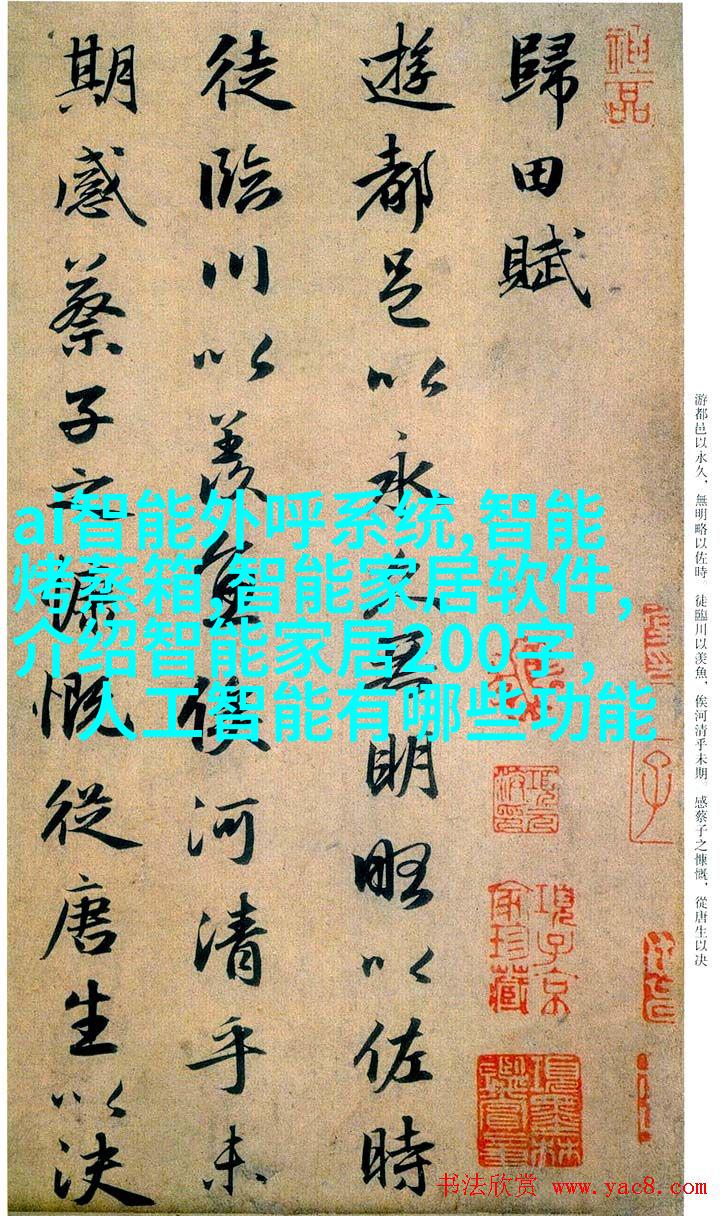 歸田賦
遊都邑以永久無明略以佐時
徒臨川以羨魚俟河清乎未
期感蔡子之慷慨從唐生以決
ai智能外呼系统,智能
烤蒸箱,智能家居软件,
介绍智能家居200字,
人工智能有哪些功能
游都邑以永久，無明略以佐時　徒臨川以羨魚，俟河清乎未期。感蔡子之慷慨，從唐生以决
神品
項子京家珍藏
項墨林鑑賞章
书法欣赏 www.yac8.com